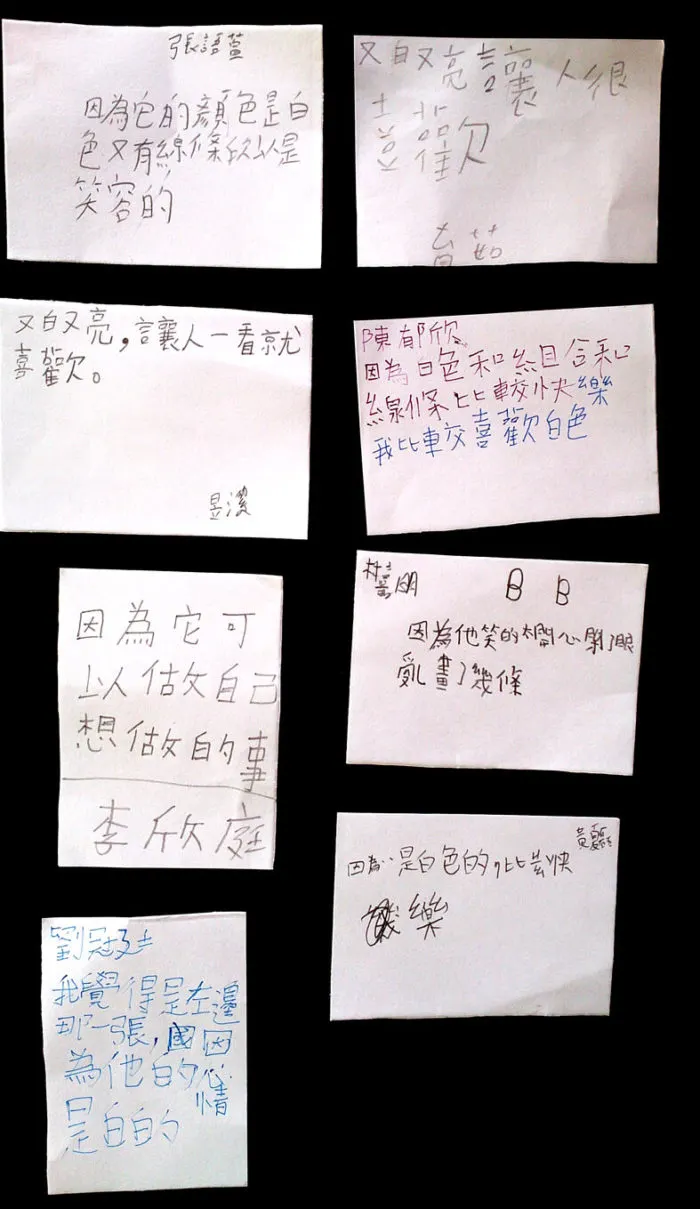 張語萱
因為它的顏色是白
色又有線條所以是
笑容的
又白又亮讓人很
喜歡
又白又亮，讓人一看就
喜歡。
陳郁欣
因為白色和組合和
線條比較快樂
我比較喜歡白色
因為它可
以做自己
想做的事
李欣庭
B B
因為他笑的太開心閉了眼
亂畫了幾條
因為是白色的，比去快
樂
劉冠
我覺得是左邊
那一張，因
為他的心情
是白白的